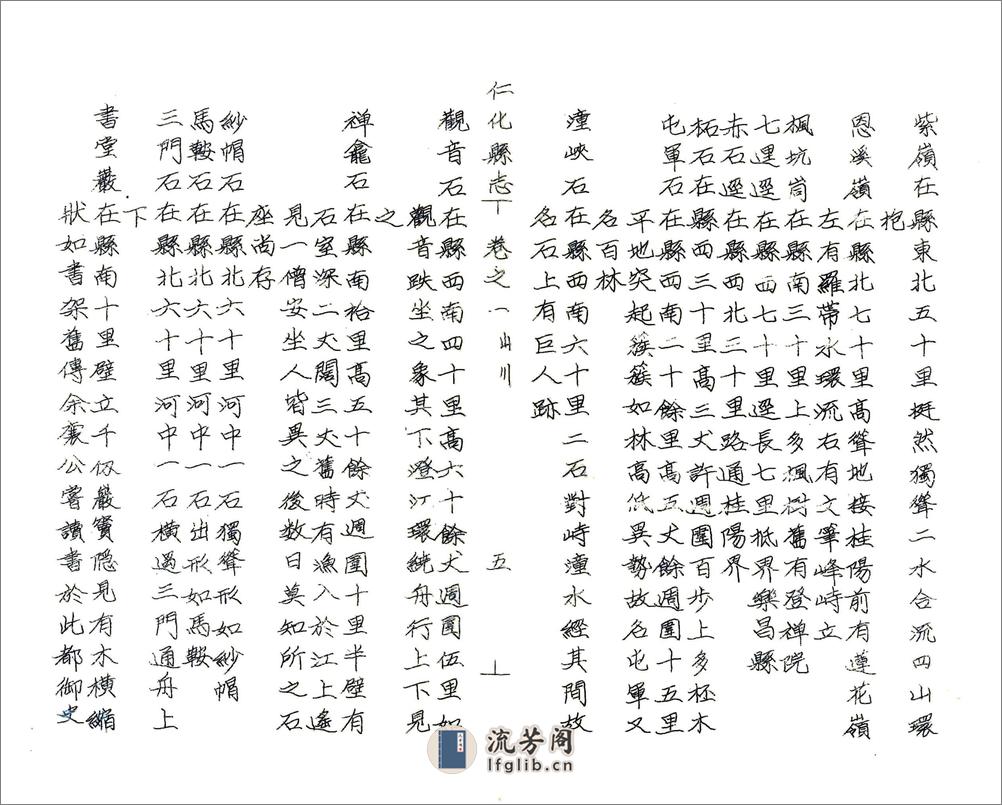 紫嶺在縣東北五十里挺然獨聳二水合流四山環
抱
恩溪嶺在縣北七十里高聳地接桂陽前有蓮花嶺
左有羅帶水環流右有文筆峰峙立
楓坑崗在縣南三十里上多楓樹舊有登禅院
七里逕在縣西七十里逕長七里抵界樂昌縣
赤石逕在縣西北三十里路通桂陽界
柘石在縣西三十里高三丈許週圍百步上多柸木
屯軍石在縣西南二十餘里高五丈餘週圍十五里
平地突起簇簇如林高低異勢故名屯軍又
名百林
潼峽石在縣西南六十里二石對峙潼水經其間故
名石上有巨人跡
仁化縣志 卷之一 山川 五
觀音石在縣西南四十里高六十餘丈週圍伍里如
觀音趺坐之象其下澄江環繞舟行上下見
之
禅龕石在縣南拾里高五十餘丈週圍十里半壁有
石室深二丈闊三丈舊時有漁入於江上遙
見一僧安坐人皆異之後数日莫知所之石
座尚存
紗帽石在縣北六十里河中一石獨聳形如紗帽
馬鞍石在縣北六十里河中一石出形如馬鞍
三門石在縣北六十里河中一石橫過三門通舟上
下
書堂巖在縣南十里壁立千仭巖竇隱見有木橫縮
狀如書架舊傳余襄公嘗讀書於此都御史
流芳阁
lfglib.cn